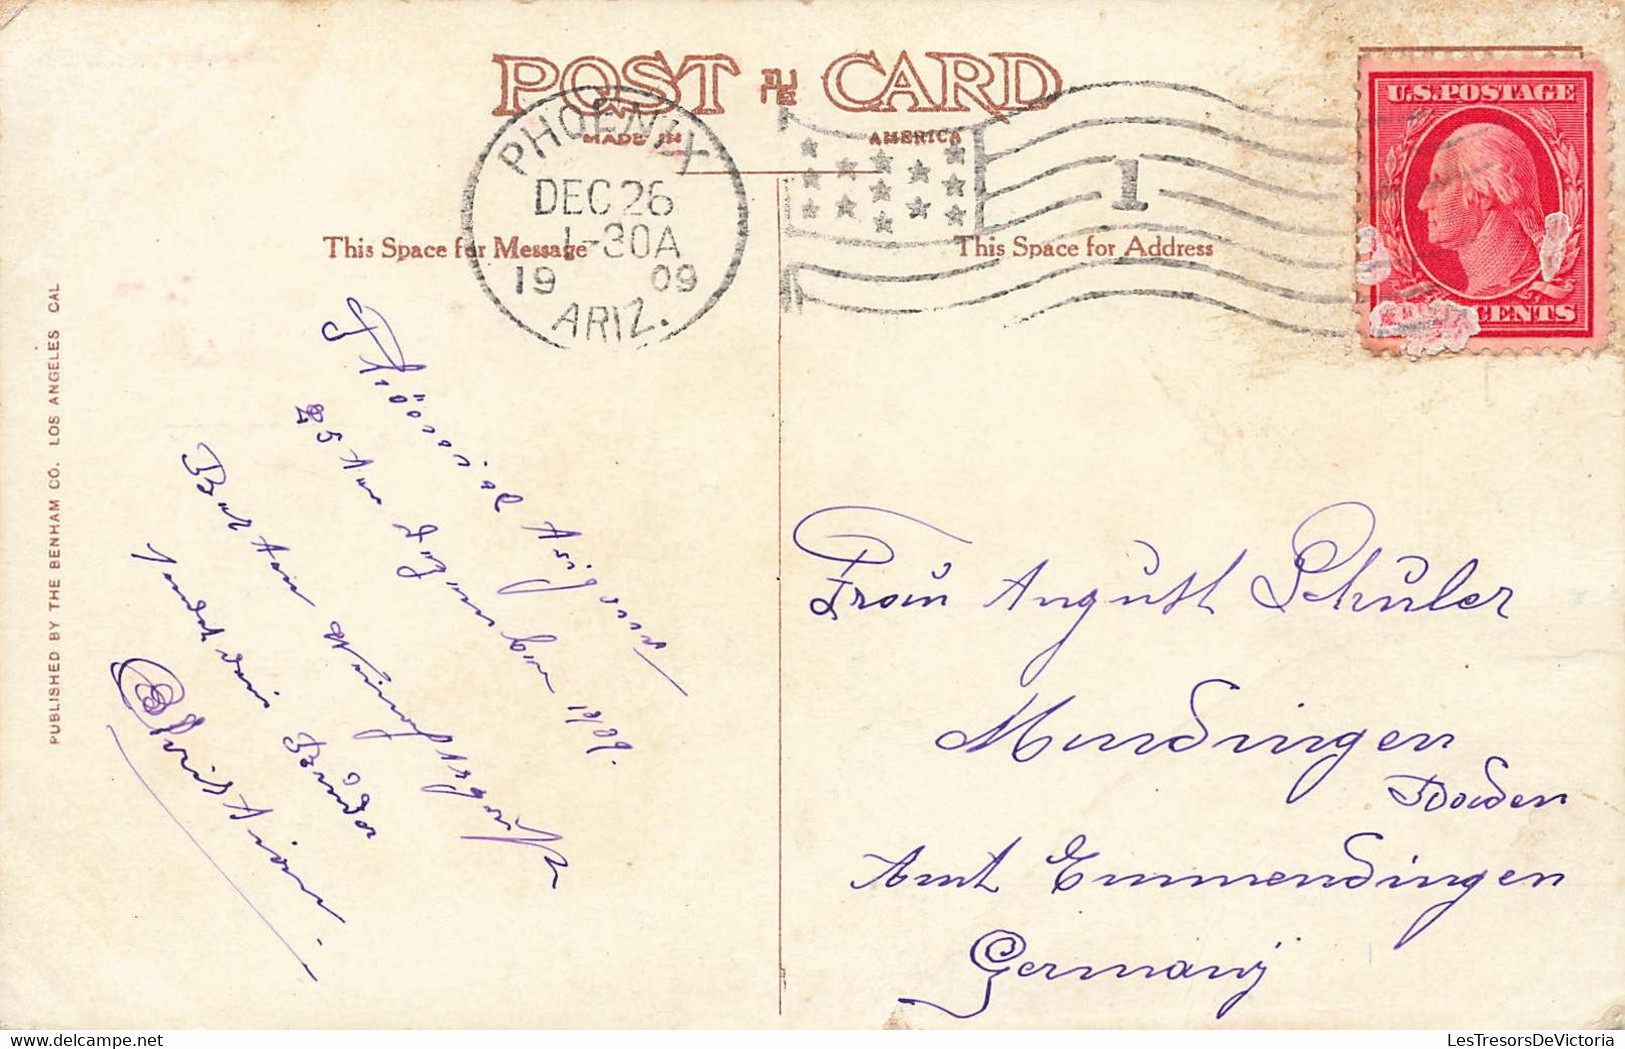 POST CARD
MADE IN AMERICA
PHOENIX
DEC 26
1-30A
19 09
ARIZ.
1
U.S. POSTAGE
CENTS
This Space for Message
This Space for Address
PUBLISHED BY THE BENHAM CO. LOS ANGELES CAL
Arizona
25ten Dezember 1909.
Besten
sendet dein Bruder
Christian.
Frau August Schuler
Mundingen
Baden
Amt Emmendingen
Germany
LesTresorsDeVictoria